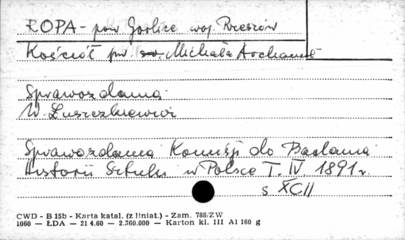 ROPA - pow Gorlice woj Rzeszów
Kościół pw. św. Michała Archanioła
Sprawozdania
W. Łuszczkiewicz
Sprawozdania Komisji do Badania
Historii Sztuki w Polsce T. IV 1891 r.
s XCII
CWD - B 15b - Karta katal. (z liniat.) - Zam. 788/ZW
1060 - ŁDA - 21 4.60 - 2.360.000 - Karton kl. III A1 160 g